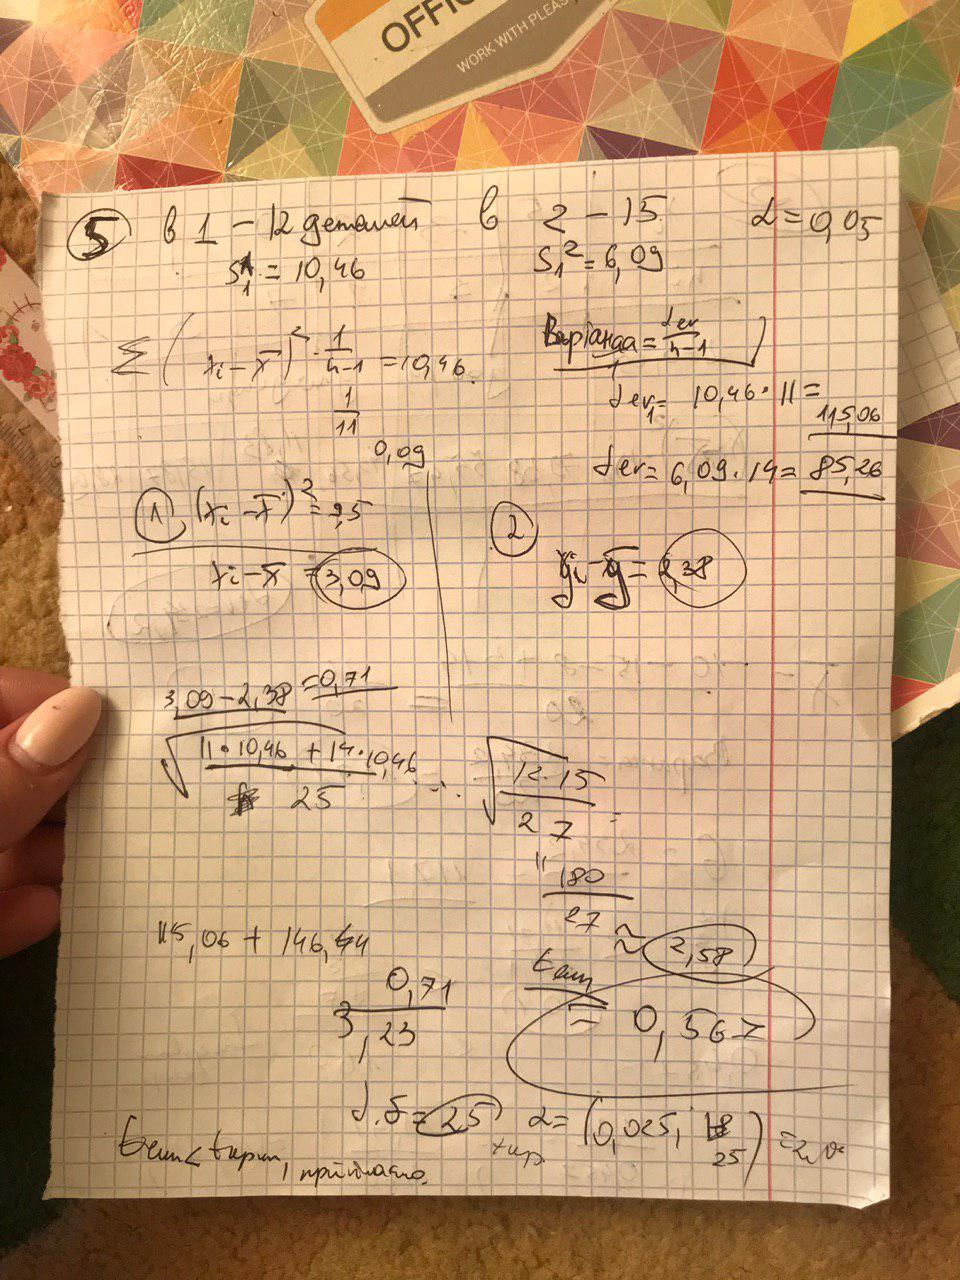 OFFIC
WORK WITH PLEAS
5 в 1 – 12 деталей в 2 – 15 α = 0,05
S₁ = 10,46 S₁² = 6,09
Σ(xᵢ – x̅)² · 1/n-1 = 10,46
1/11
0,09
Варіанса = dev/n-1
dev₁ = 10,46 · 11 = 115,06
dev = 6,09 · 14 = 85,26
1 (xᵢ – x̅)² = 9,5
xᵢ – x̅ = 3,09
2
yᵢ – y̅ = 2,38
3,09 – 2,38 = 0,71
√(11 · 10,46 + 14 · 10,46 / 25) . . .
√(12 · 15 / 27) =
"
180/27 ≈ 2,58
115,06 + 146,44
0,71/3,23
tемп = 0,567
d.f = 25 tкр α = (0,025; 25) =
tемп < tкрит,